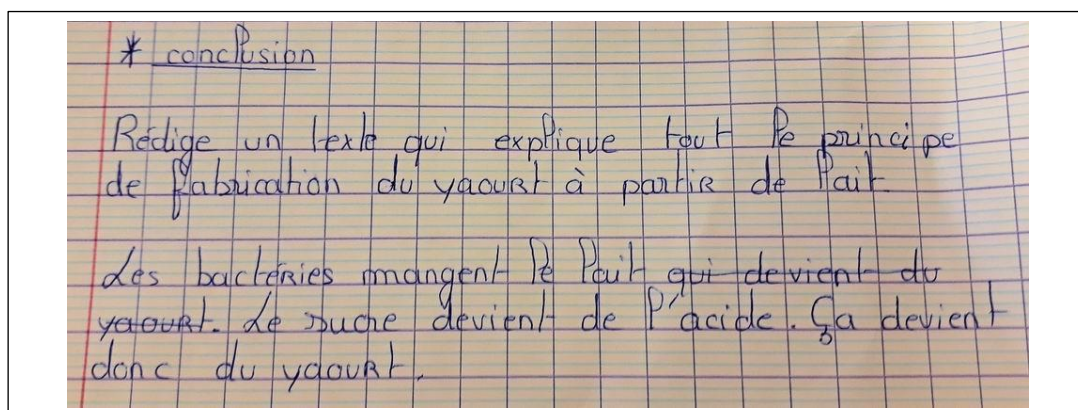 * conclusion
Rédige un texte qui explique tout le principe
de fabrication du yaourt à partir de lait
Les bactéries mangent le lait qui devient du
yaourt. Le sucre devient de l'acide. Ça devient
donc du yaourt.